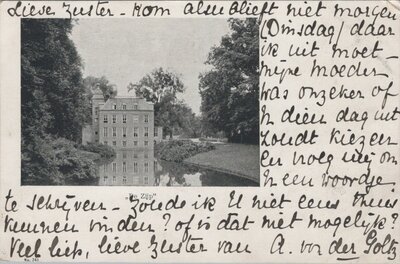 Lieve Zuster - Kom alsublieft niet morgen
(Dinsdag) daar
ik uit moet -
mijne moeder
was onzeker of
'n dien dag uit
zoudt kiezen
en vroeg mij om
'n een woordje
te schrijven - Zoude ik U niet eens thuis
kunnen vinden? of is dat niet mogelijk?
Veel liefs, lieve Zuster van A. von der Goltz
"De Zijp"
No. 243